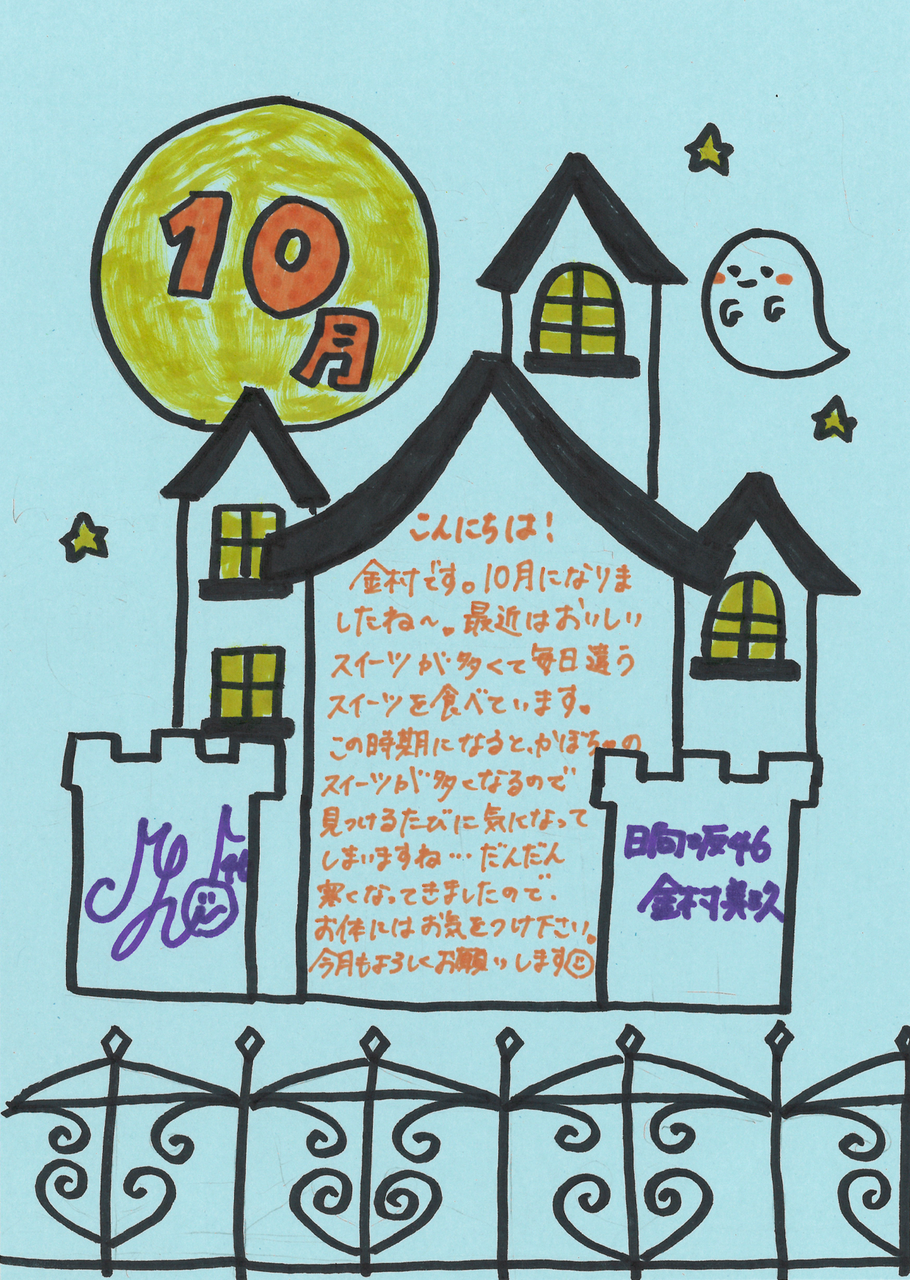 10月
こんにちは!
金村です。10月になりま
したね〜。最近はおいしい
スイーツが多くて毎日違う
スイーツを食べています。
この時期になると、かぼちゃの
スイーツが多くなるので
見つけるたびに気になって
しまいますね…だんだん
寒くなってきましたので、
お体にはお気をつけ下さい。
今月もよろしくお願いします
日向坂46
金村美玖